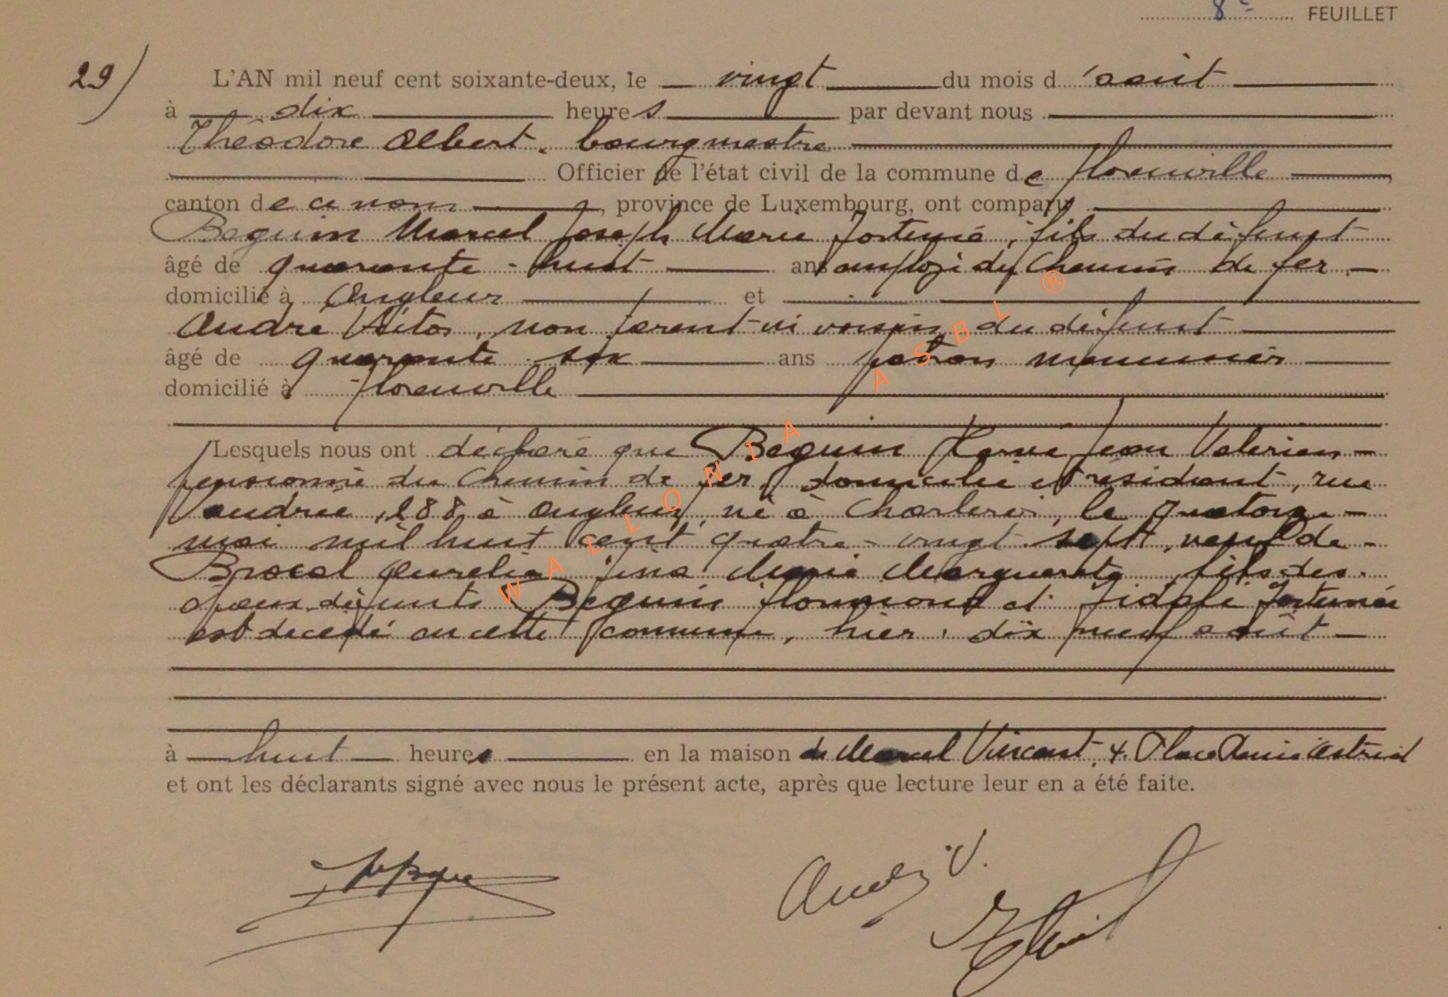 8e FEUILLET
29) L'AN mil neuf cent soixante-deux, le vingt du mois d'août
à dix heures par devant nous
Théodore Albert, bourgmestre
Officier de l'état civil de la commune de Florenville,
canton de ce nom, province de Luxembourg, ont comparu
Beguin Marcel Joseph Marie Fortuné, fils du défunt
âgé de quarante-huit ans employé du Chemin de fer
domicilié à Angleur et
André Vitos, non parent ni voisin du défunt
âgé de quarante six ans patron menuisier
domicilié à Florenville
Lesquels nous ont déclaré que Beguin Jean Valerien
pensionné du Chemin de fer, domicilié et résidant, rue
Vaudrée, 288 à Angleur, né à Charleroi, le quatorze
mai mil huit cent quatre-vingt sept, veuf de
Aurelie Marie Marguerite, fils des
époux défunts Beguin et Fortunée
est décédé en cette commune, hier, dix neuf août
à huit heures en la maison de Marcel Vincent, 4, Place Reine Astrid
et ont les déclarants signé avec nous le présent acte, après que lecture leur en a été faite.
André V.
WALLONIA ASBL ®